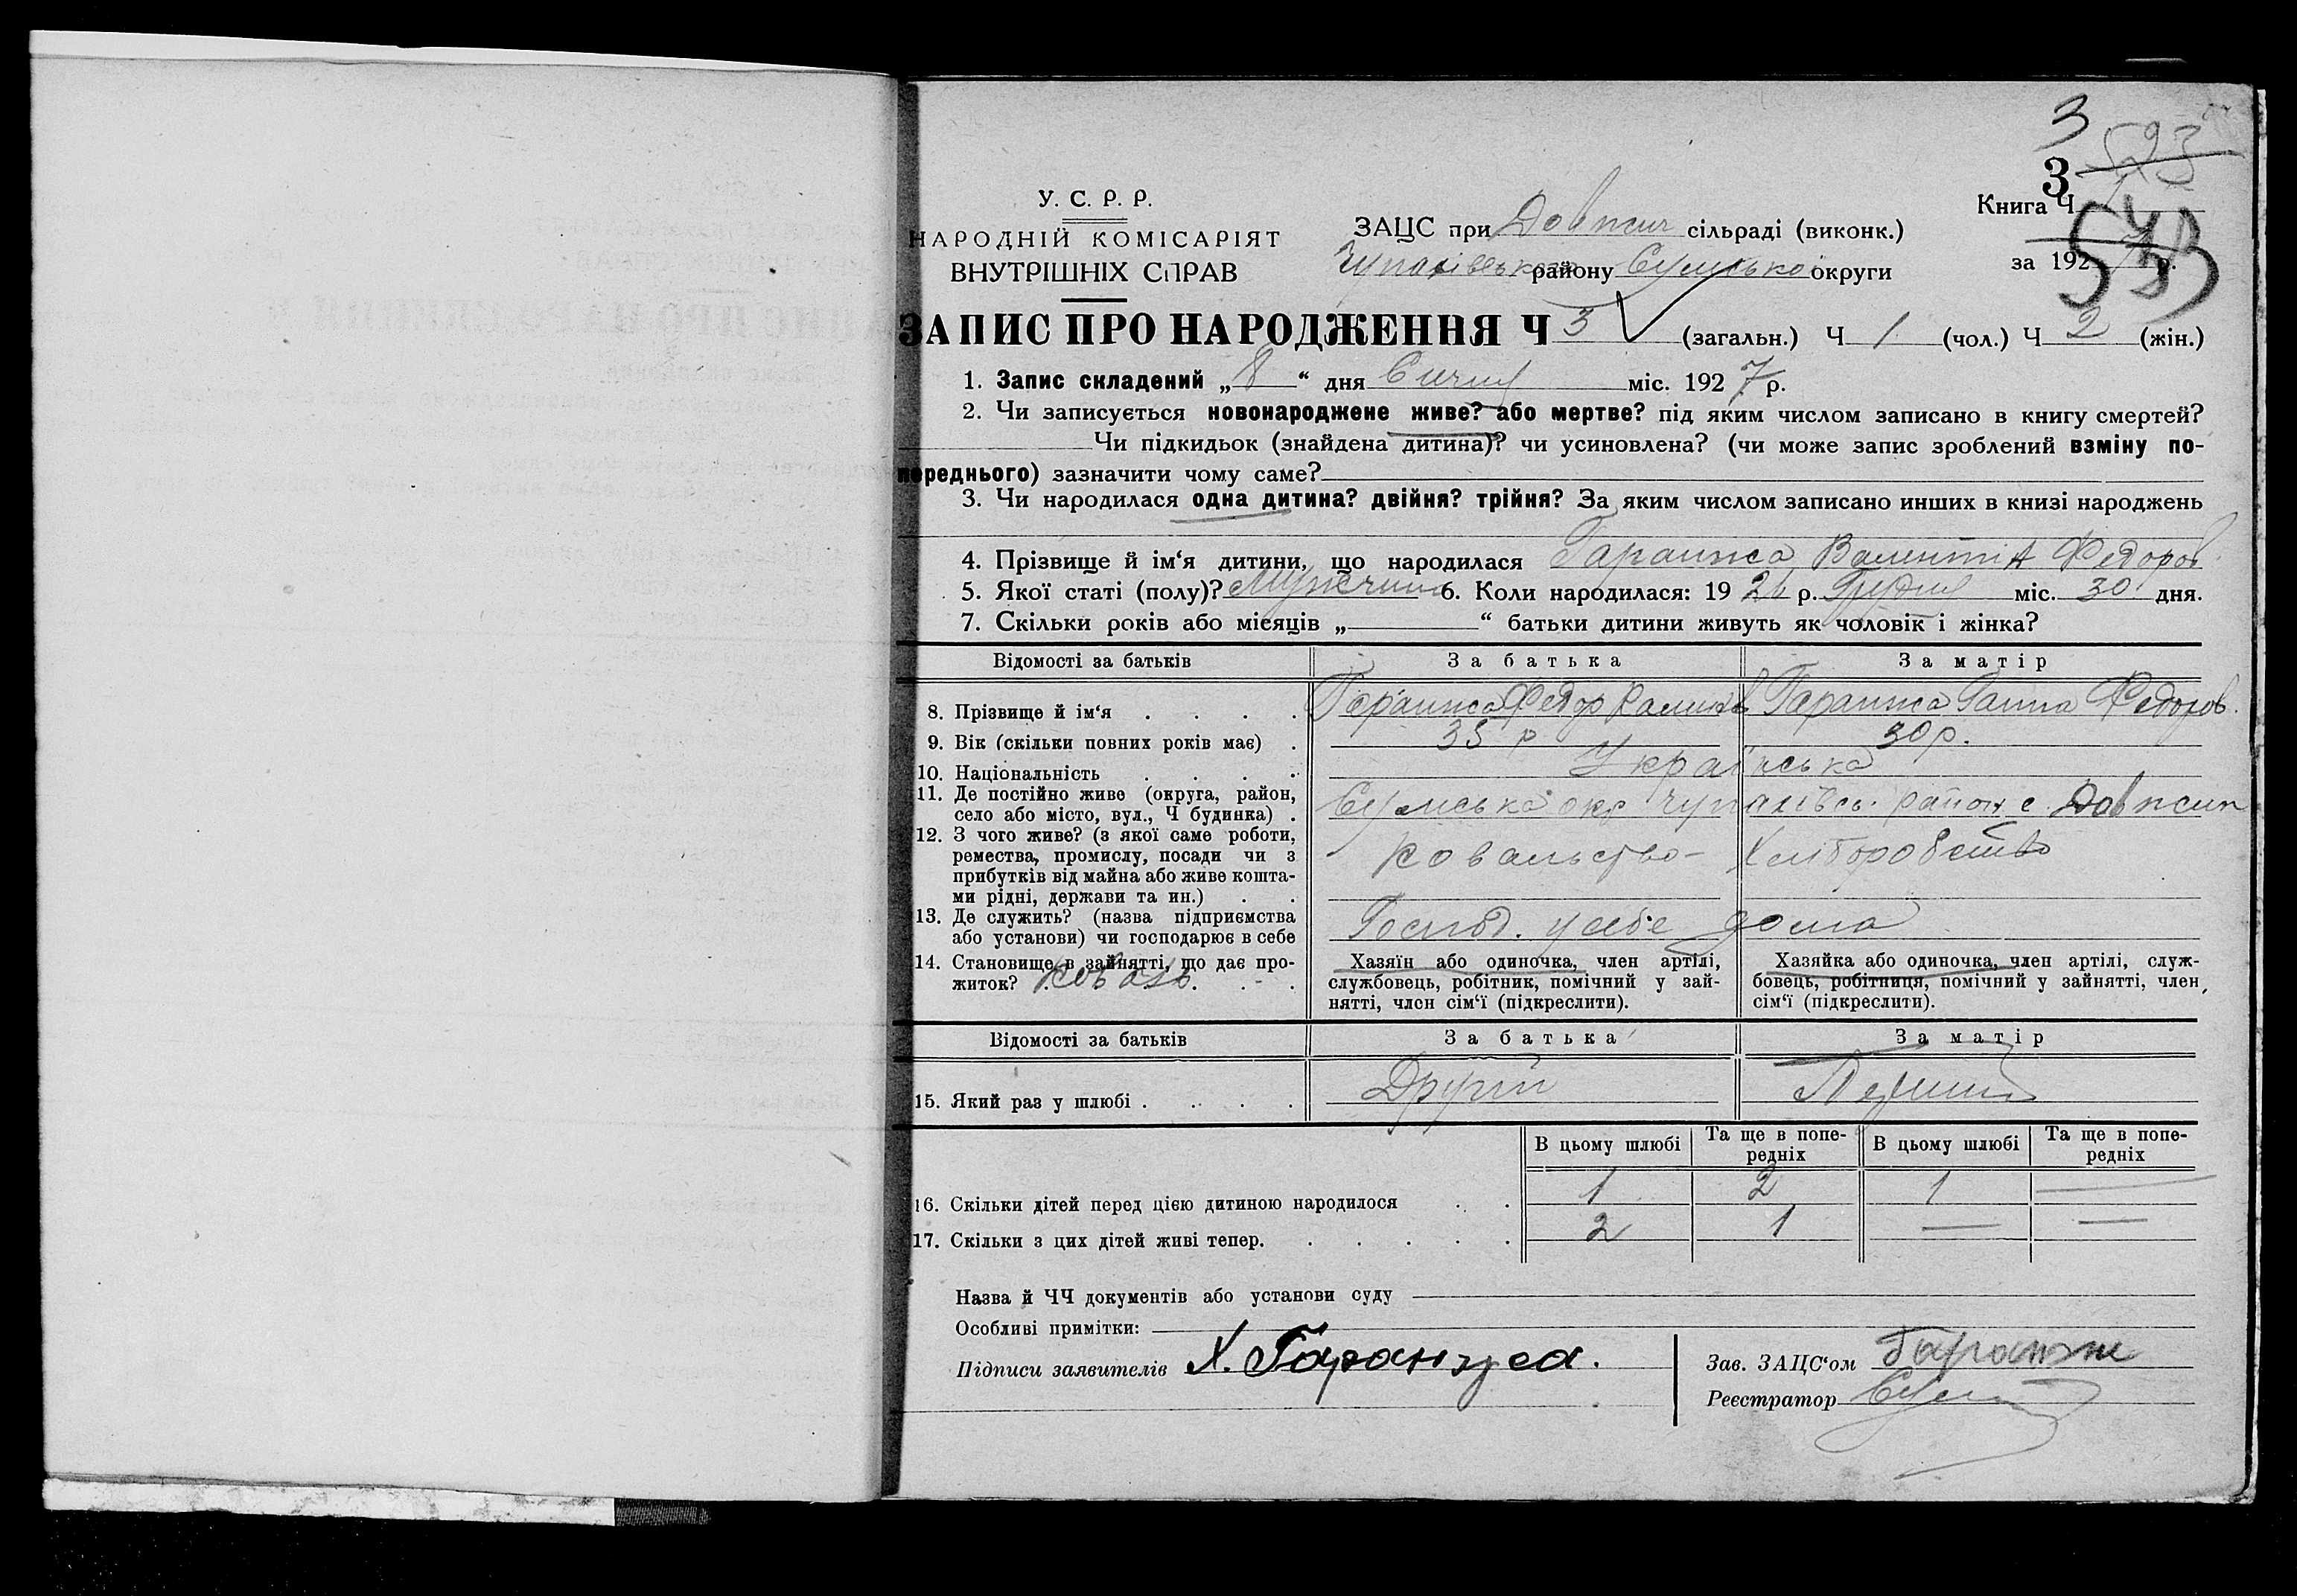 3
523
3
У. С. Р. Р.
НАРОДНІЙ КОМІСАРІЯТ
ВНУТРІШНІХ СПРАВ
ЗАЦС при Довжик сільраді (виконк.)
Чупахівського району Сумської округи
Книга Ч
за 1927 р.
ЗАПИС ПРО НАРОДЖЕННЯ Ч 3 (загальн.) Ч 1 (чол.) Ч 2 (жін.)
1. Запис складений „8“ дня Січня міс. 1927 р.
2. Чи записується новонароджене живе? або мертве? під яким числом записано в книгу смертей?
Чи підкидьок (знайдена дитина)? чи усиновлена? (чи може запис зроблений взміну по-
переднього) зазначити чому саме?
3. Чи народилася одна дитина? двійня? трійня? За яким числом записано инших в книзі народжень
4. Прізвище й ім‘я дитини, що народилася Гаранжа Валентін Федоров
5. Якої статі (полу)? Мужчина 6. Коли народилася: 1926 р. Грудня міс. 30 дня.
7. Скільки років або місяців „ “ батьки дитини живуть як чоловік і жінка?
Відомості за батьків За батька За матір
8. Прізвище й ім‘я Гаранжа Федор Гаранжа Ганна Федоров.
9. Вік (скільки повних років має) 35 р 30 р.
10. Національність Українська
11. Де постійно живе (округа, район,
село або місто, вул., Ч будинка) Сумська окр Чупахівсь. район с. Довжик
12. З чого живе? (з якої саме роботи,
ремества, промислу, посади чи з
прибутків від майна або живе кошта-
ми рідні, держави та ин.) Ковальство - Хліборобство
13. Де служить? (назва підприємства
або установи) чи господарює в себе Госпód. у себе дома
14. Становище в зайнятті, що дає про-
житок? Коваль.
Хазяїн або одиночка, член артілі,
службовець, робітник, помічний у зай-
нятті, член сім‘ї (підкреслити).
Хазяйка або одиночка, член артілі, служ-
бовець, робітниця, помічний у зайнятті, член
сім‘ї (підкреслити).
Відомості за батьків За батька За матір
15. Який раз у шлюбі Другий Перший
В цьому шлюбі Та ще в попе-
редніх В цьому шлюбі Та ще в попе-
редніх
16. Скільки дітей перед цією дитиною народилося 1 2 1 —
17. Скільки з цих дітей живі тепер. 2 1 — —
Назва й ЧЧ документів або установи суду
Особливі примітки:
Підписи заявителів Х. Гаранжа.
Зав. ЗАЦС‘ом Гаранж
Реєстратор